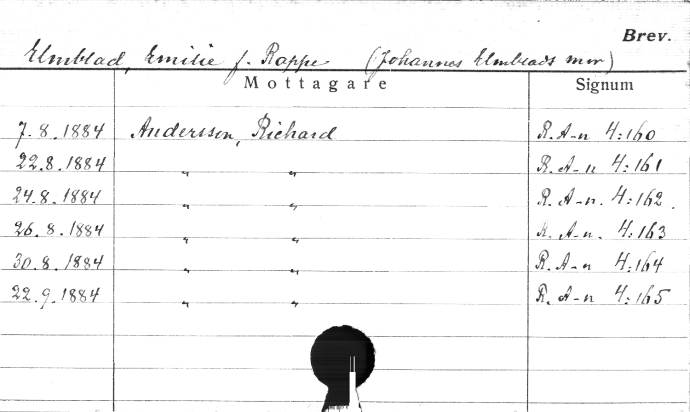 Brev.
Elmblad, Emilie f. Rappe (Johannes Elmblads mor)
Mottagare Signum
7.8.1884 Andersson, Richard R. A-n 4:160
22.8.1884 " " R. A-n 4:161
24.8.1884 " " R. A-n. 4:162.
26.8.1884 " " R. A-n. 4:163
30.8.1884 " " R. A-n 4:164
22.9.1884 " " R. A-n 4:165